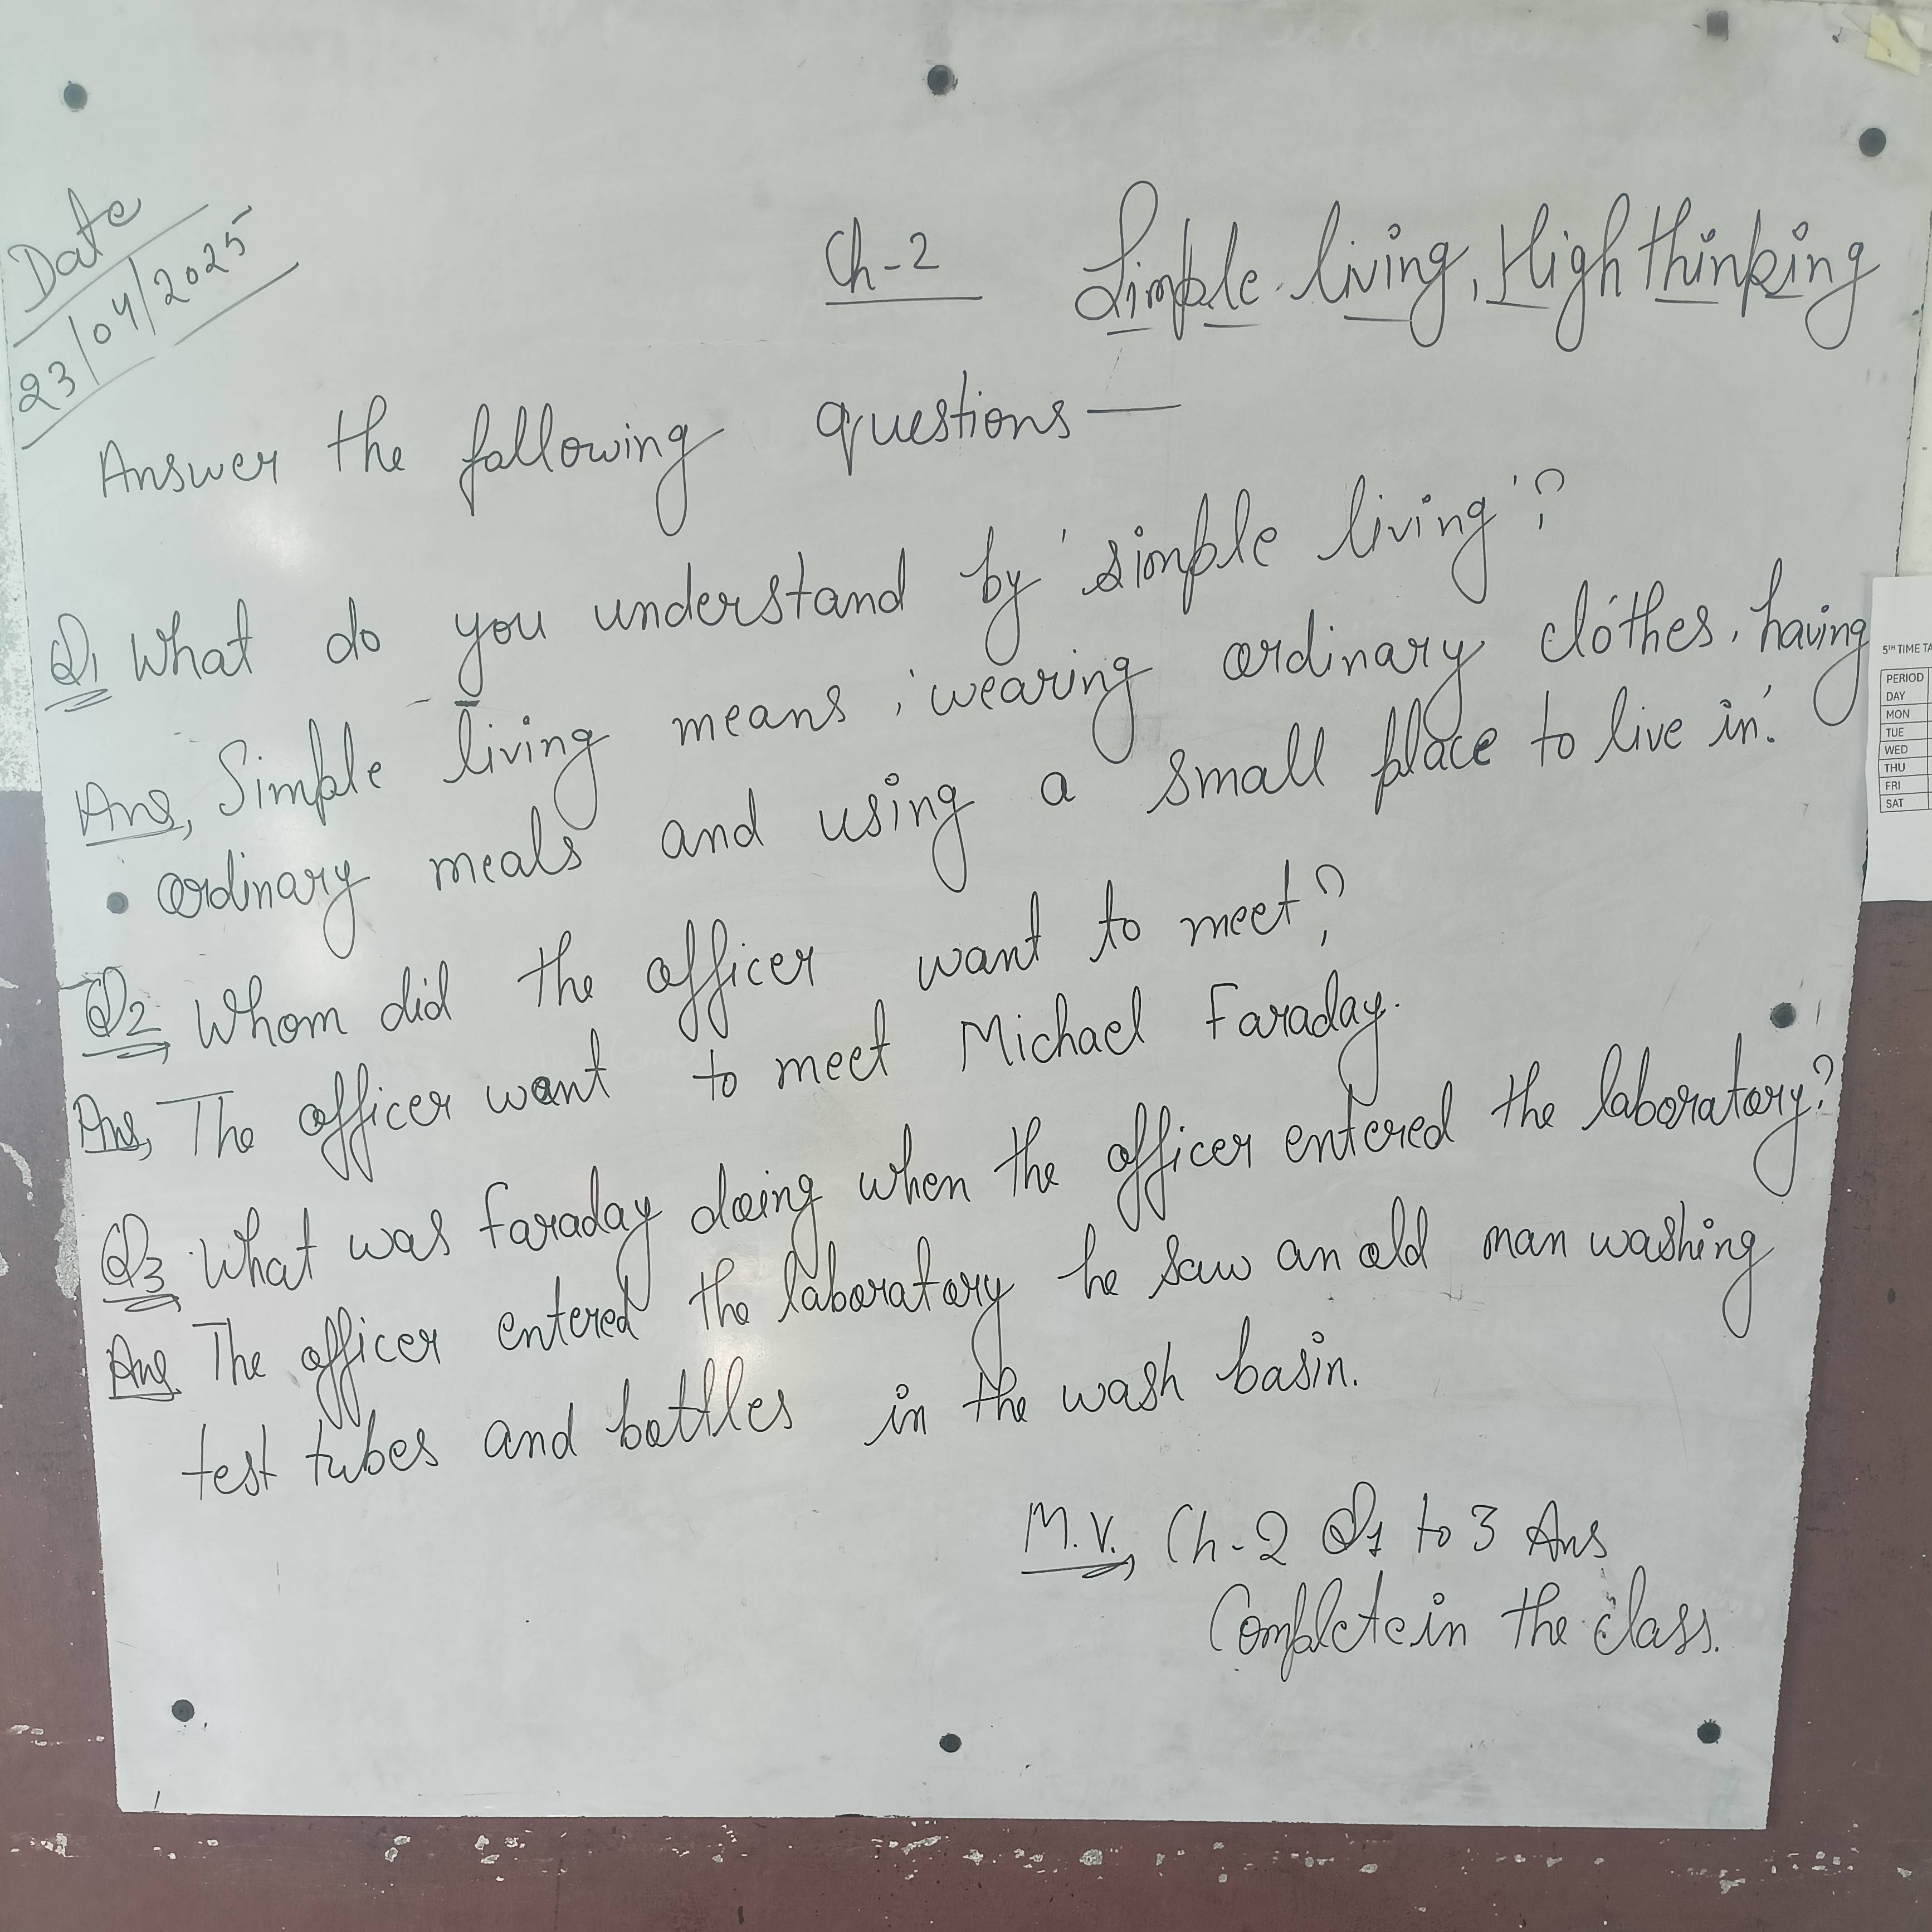 Date
23/04/2025
Ch-2 Simple living, High thinking
Answer the following questions —
Q1 What do you understand by 'simple living'?
Ans, Simple living means ; wearing ordinary clothes, having
ordinary meals and using a small place to live in.'
Q2, Whom did the officer want to meet?
Ans, The officer want to meet Michael Faraday.
Q3 What was faraday doing when the officer entered the laboratory?
Ans The officer entered the laboratory he saw an old man washing
test tubes and bottles in the wash basin.
M.V., Ch-2 Q1 to 3 Ans
Complete in the class.
5TH TIME TA
PERIOD
DAY
MON
TUE
WED
THU
FRI
SAT